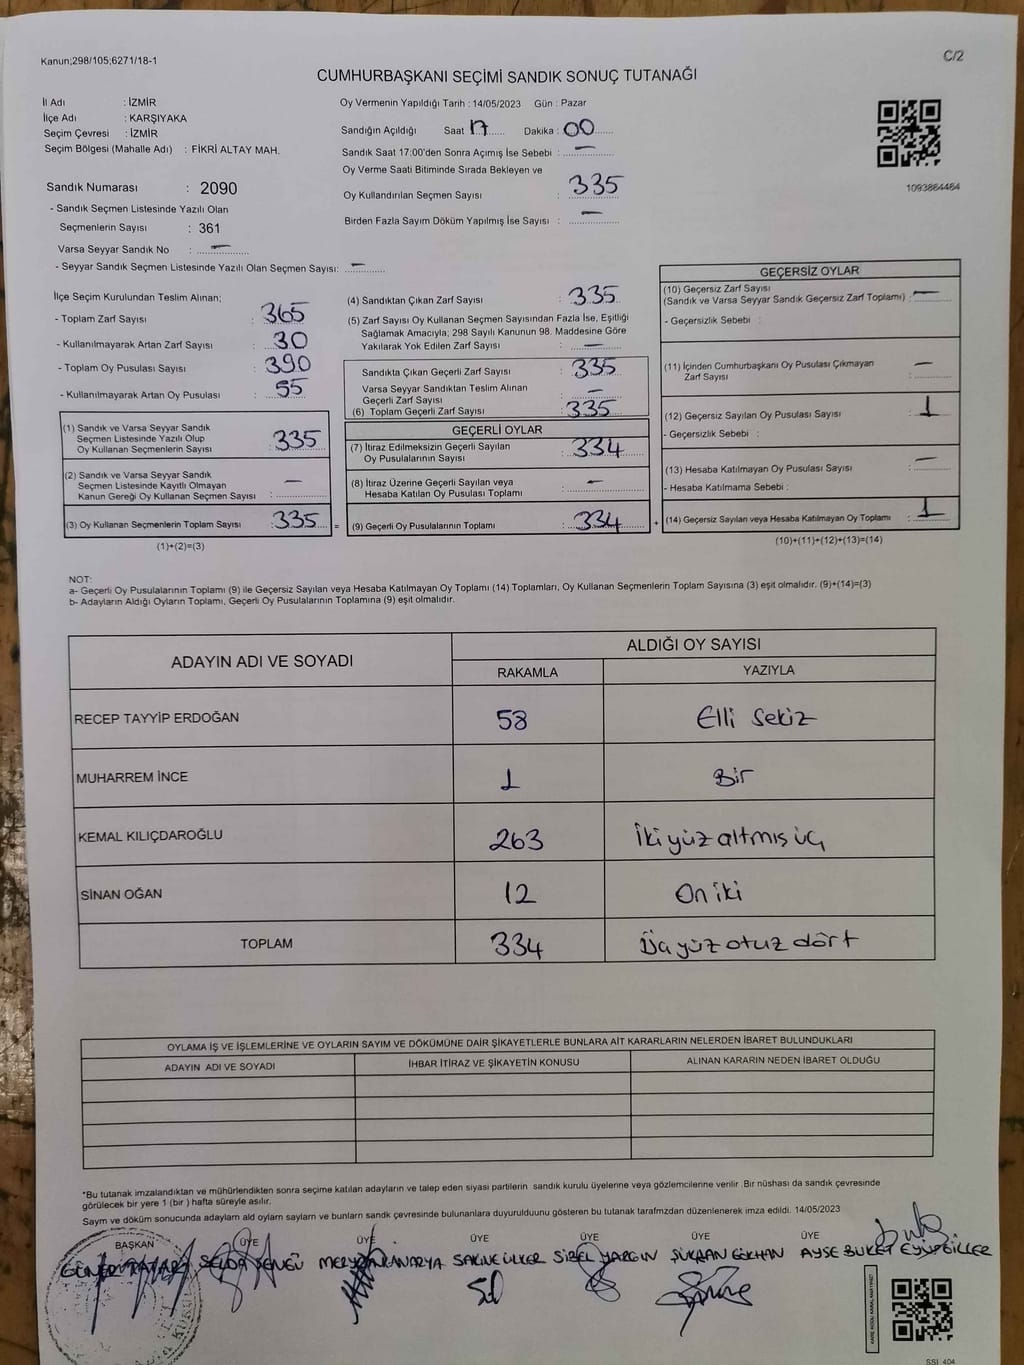 Kanun;298/105;6271/18-1
C/2
CUMHURBAŞKANI SEÇİMİ SANDIK SONUÇ TUTANAĞI
İl Adı : İZMİR
İlçe Adı : KARŞIYAKA
Seçim Çevresi : İZMİR
Seçim Bölgesi (Mahalle Adı) : FİKRİ ALTAY MAH.
Oy Vermenin Yapıldığı Tarih : 14/05/2023 Gün : Pazar
Sandığın Açıldığı Saat 17 Dakika : 00
Sandık Saat 17:00'den Sonra Açımış İse Sebebi : —
Oy Verme Saati Bitiminde Sırada Bekleyen ve
Oy Kullandırılan Seçmen Sayısı : 335
Birden Fazla Sayım Döküm Yapılmış İse Sayısı : —
1093864464
Sandık Numarası : 2090
- Sandık Seçmen Listesinde Yazılı Olan
Seçmenlerin Sayısı : 361
Varsa Seyyar Sandık No : —
- Seyyar Sandık Seçmen Listesinde Yazılı Olan Seçmen Sayısı: —
İlçe Seçim Kurulundan Teslim Alınan;
- Toplam Zarf Sayısı : 365
- Kullanılmayarak Artan Zarf Sayısı : 30
- Toplam Oy Pusulası Sayısı : 390
- Kullanılmayarak Artan Oy Pusulası : 55
(1) Sandık ve Varsa Seyyar Sandık
Seçmen Listesinde Yazılı Olup
Oy Kullanan Seçmenlerin Sayısı : 335
(2) Sandık ve Varsa Seyyar Sandık
Seçmen Listesinde Kayıtlı Olmayan
Kanun Gereği Oy Kullanan Seçmen Sayısı : —
(3) Oy Kullanan Seçmenlerin Toplam Sayısı : 335 =
(1)+(2)=(3)
(4) Sandıktan Çıkan Zarf Sayısı : 335
(5) Zarf Sayısı Oy Kullanan Seçmen Sayısından Fazla İse, Eşitliği
Sağlamak Amacıyla; 298 Sayılı Kanunun 98. Maddesine Göre
Yakılarak Yok Edilen Zarf Sayısı : —
Sandıkta Çıkan Geçerli Zarf Sayısı : 335
Varsa Seyyar Sandıktan Teslim Alınan
Geçerli Zarf Sayısı : —
(6) Toplam Geçerli Zarf Sayısı : 335
GEÇERLİ OYLAR
(7) İtiraz Edilmeksizin Geçerli Sayılan
Oy Pusulalarının Sayısı : 334
(8) İtiraz Üzerine Geçerli Sayılan veya
Hesaba Katılan Oy Pusulası Toplamı : —
(9) Geçerli Oy Pusulalarının Toplamı : 334 +
GEÇERSİZ OYLAR
(10) Geçersiz Zarf Sayısı
(Sandık ve Varsa Seyyar Sandık Geçersiz Zarf Toplamı) : —
- Geçersizlik Sebebi :
(11) İçinden Cumhurbaşkanı Oy Pusulası Çıkmayan
Zarf Sayısı : —
(12) Geçersiz Sayılan Oy Pusulası Sayısı : 1
- Geçersizlik Sebebi :
(13) Hesaba Katılmayan Oy Pusulası Sayısı : —
- Hesaba Katılmama Sebebi :
(14) Geçersiz Sayılan veya Hesaba Katılmayan Oy Toplamı : 1
(10)+(11)+(12)+(13)=(14)
NOT:
a- Geçerli Oy Pusulalarının Toplamı (9) ile Geçersiz Sayılan veya Hesaba Katılmayan Oy Toplamı (14) Toplamları, Oy Kullanan Seçmenlerin Toplam Sayısına (3) eşit olmalıdır. (9)+(14)=(3)
b- Adayların Aldığı Oyların Toplamı, Geçerli Oy Pusulalarının Toplamına (9) eşit olmalıdır.
ADAYIN ADI VE SOYADI
ALDIĞI OY SAYISI
RAKAMLA YAZIYLA
RECEP TAYYİP ERDOĞAN 58 Elli sekiz
MUHARREM İNCE 1 Bir
KEMAL KILIÇDAROĞLU 263 İki yüz altmış üç
SİNAN OĞAN 12 On iki
TOPLAM 334 Üç yüz otuz dört
OYLAMA İŞ VE İŞLEMLERİNE VE OYLARIN SAYIM VE DÖKÜMÜNE DAİR ŞİKAYETLERLE BUNLARA AİT KARARLARIN NELERDEN İBARET BULUNDUKLARI
ADAYIN ADI VE SOYADI İHBAR İTİRAZ VE ŞİKAYETİN KONUSU ALINAN KARARIN NEDEN İBARET OLDUĞU
*Bu tutanak imzalandıktan ve mühürlendikten sonra seçime katılan adayların ve talep eden siyasi partilerin sandık kurulu üyelerine veya gözlemcilerine verilir .Bir nüshası da sandık çevresinde
görülecek bir yere 1 (bir ) hafta süreyle asılır.
Sayım ve döküm sonucunda adayların ald oyların sayların ve bunların sandk çevresinde bulunanlara duyurulduunu gösteren bu tutanak tarafmzdan düzenlenerek imza edildi. 14/05/2023
BAŞKAN ÜYE ÜYE ÜYE ÜYE ÜYE ÜYE
SELDA SAKİNE ÜLKER SİBEL YARGIN ŞÜKRAN GÖKHAN AYŞE BUKET EYİNBİLLER
SSI 404